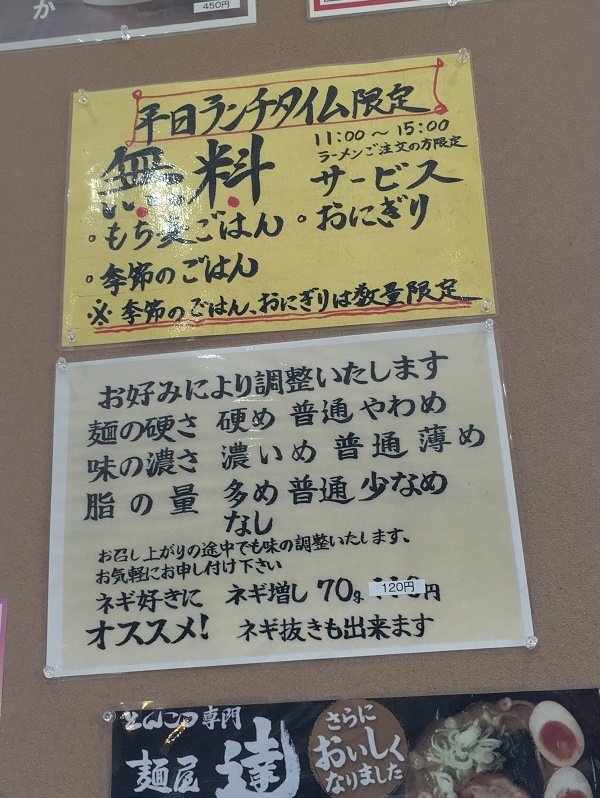 か
450円
平日ランチタイム限定
11:00～15:00
ラーメンご注文の方限定
無料サービス
。もち麦ごはん 。おにぎり
。季節のごはん
※季節のごはん、おにぎりは数量限定
お好みにより調整いたします
麺の硬さ 硬め 普通 やわめ
味の濃さ 濃いめ 普通 薄め
脂の量 多め 普通 少なめ
なし
お召し上がりの途中でも味の調整いたします、
お気軽にお申し付け下さい
ネギ好きに ネギ増し 70g 120円 円
オススメ! ネギ抜きも出来ます
とんこつ専門
麺屋 達
さらに
おいしく
なりました